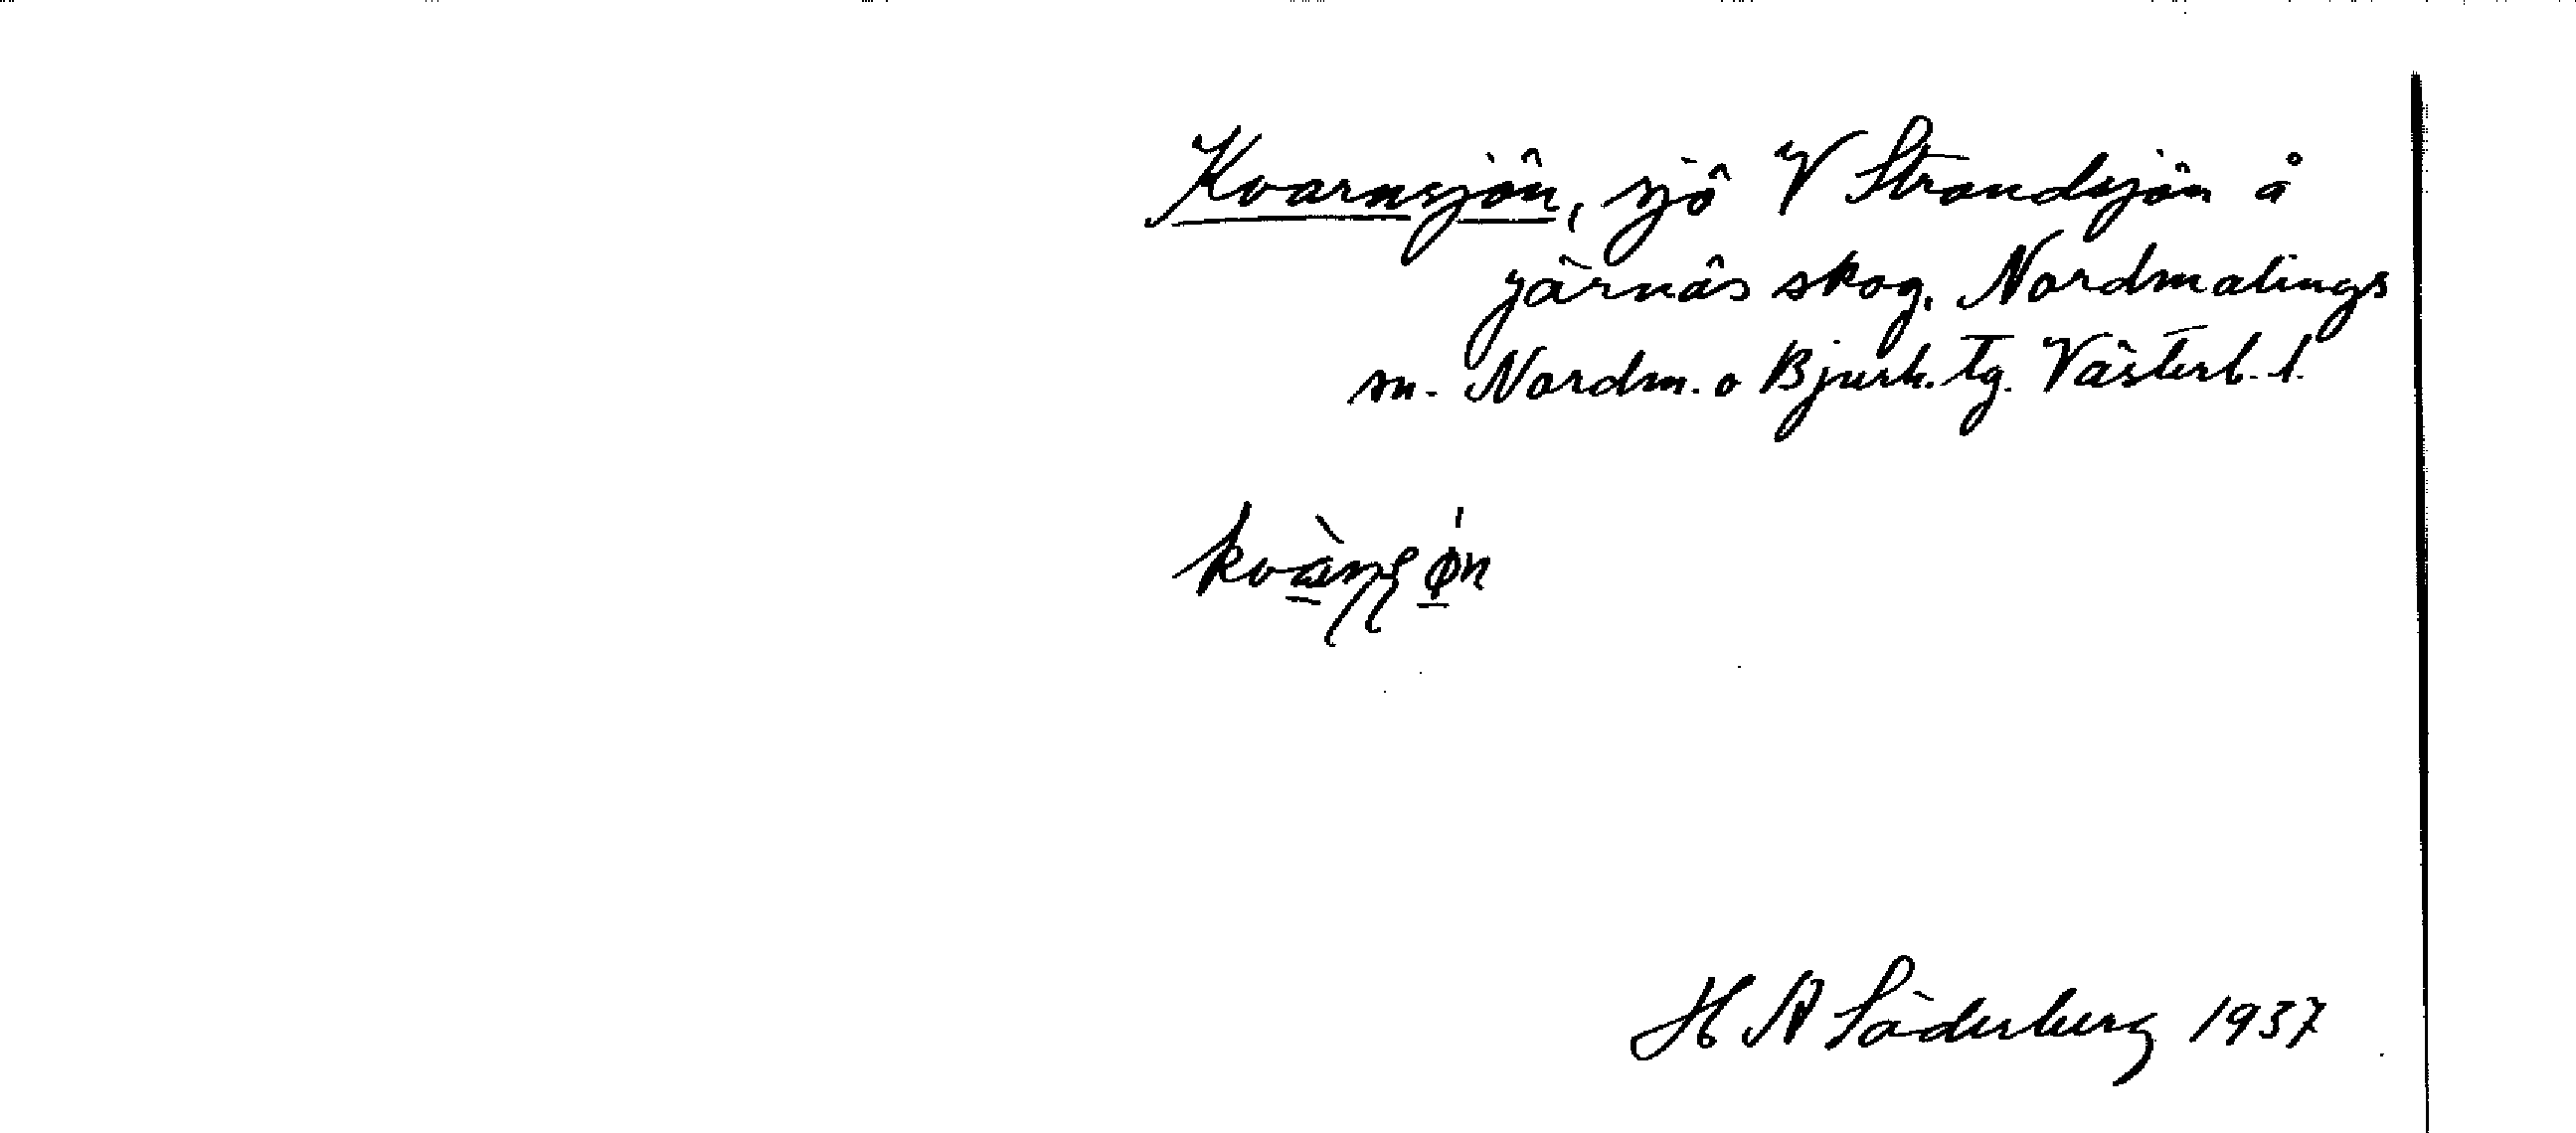 Kvarnsjön, sjö V Strandsjön å
järnäs skog, Nordmalings
sn. Nordm. o Bjurh. tg. Västerb. l.
H A Söderberg 1937